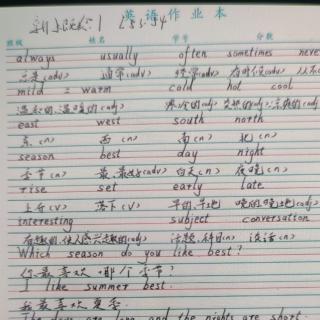 英语作业本
班级 姓名 学号 分数
always usually often sometimes never
总是(adv) 通常(adv) 经常(adv) 有时候(adv) 从不
mild = warm cold hot cool
温和的,温暖的(adj) 寒冷的(adj) 炎热的(adj) 凉爽的(adj)
east west south north
东(n) 西(n) 南(n) 北(n)
season best day night
季节(n) 最,最好(adv) 白天(n) 夜晚(n)
rise set early late
上升(v) 落下(v) 早的,早地 晚的,晚地(adj)
interesting subject conversation
有趣的,使人感兴趣的(adj) 话题,科目(n) 谈话(n)
Which season do you like best?
你最喜欢哪个季节?
I like summer best.
我最喜欢夏季.
The days are long and the nights are short.